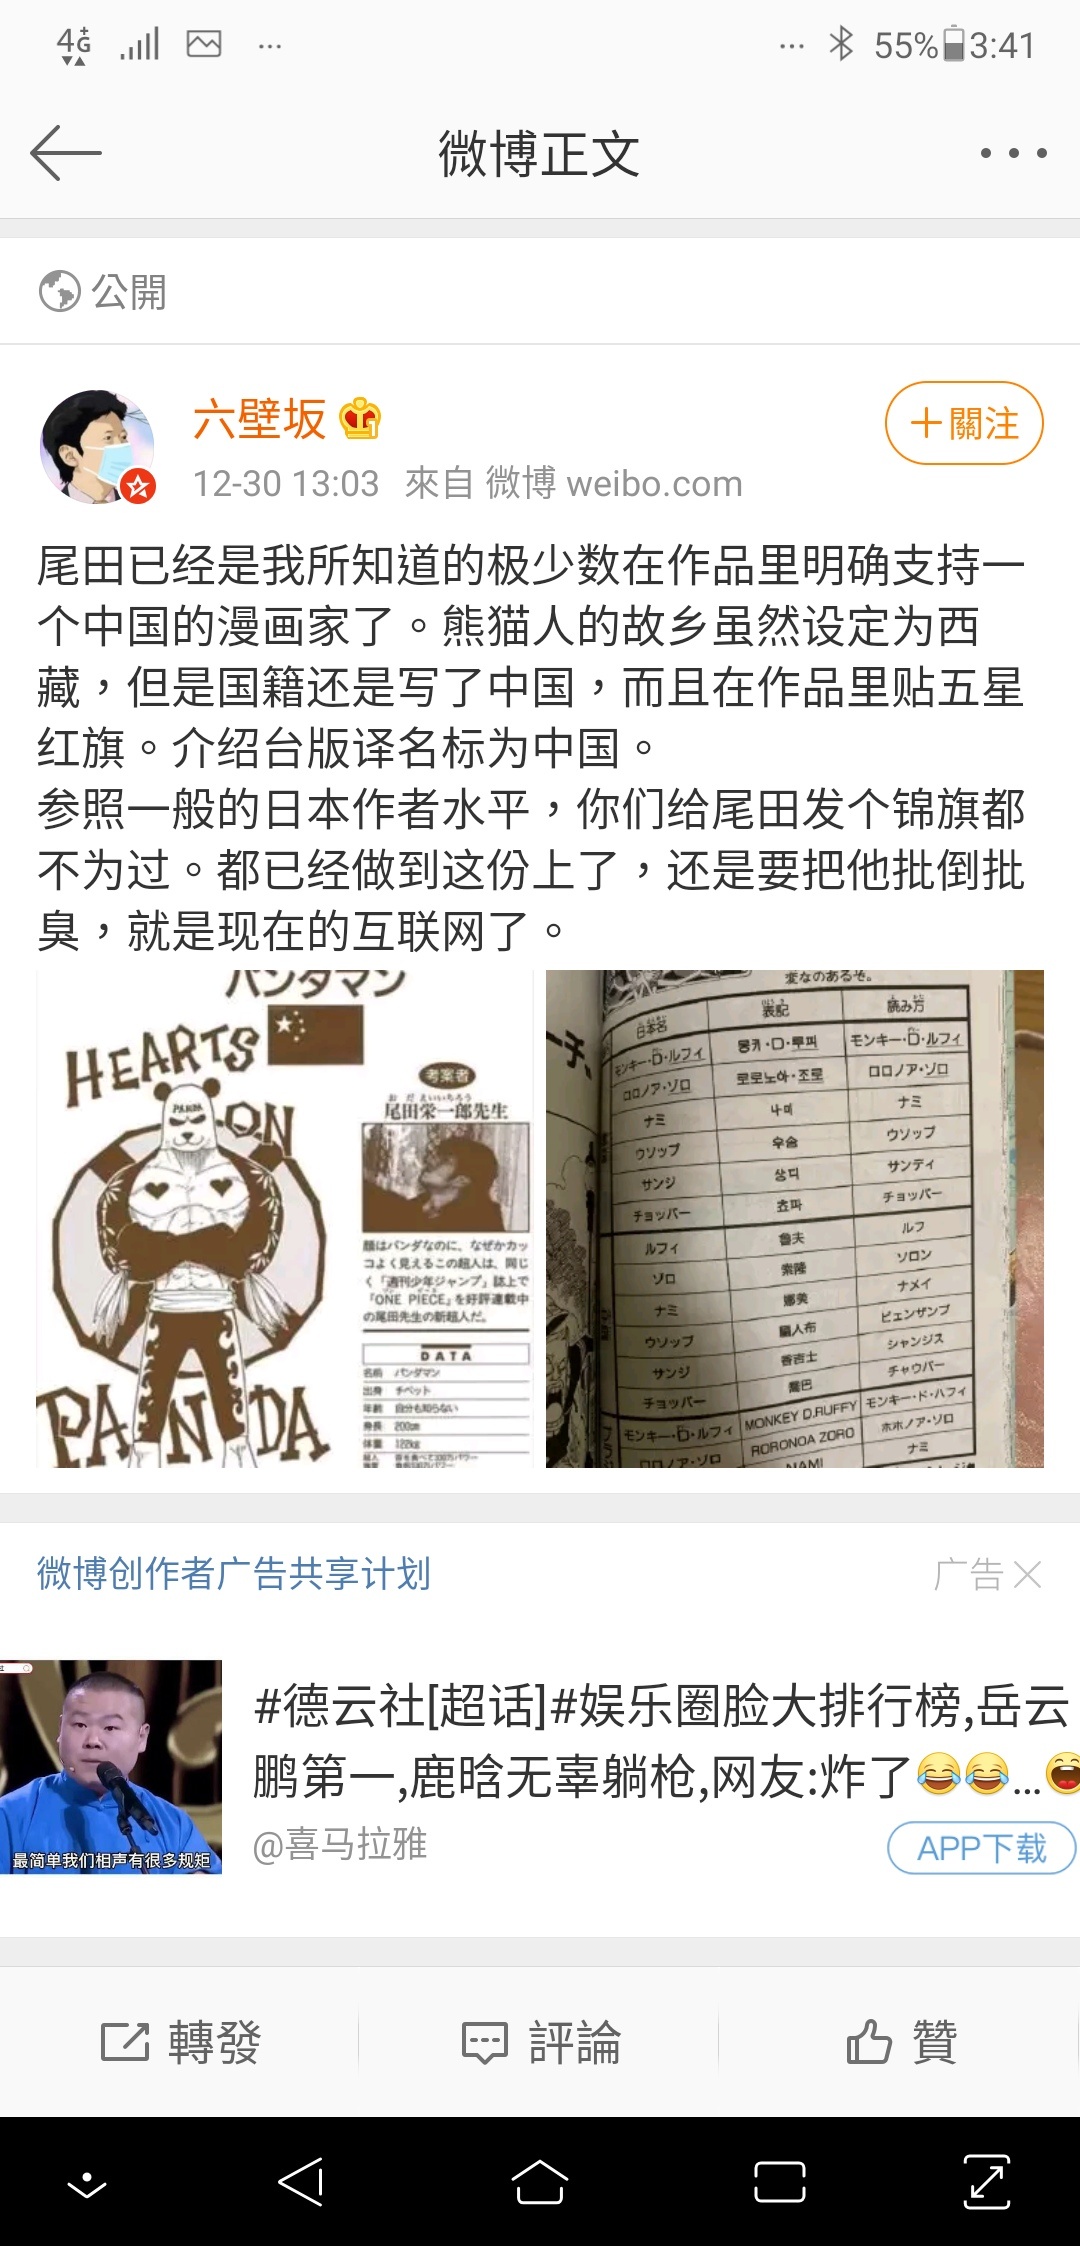 4G+
55% 3:41
微博正文
公開
六壁坂
+關注
12-30 13:03 來自 微博 weibo.com
尾田已经是我所知道的极少数在作品里明确支持一
个中国的漫画家了。熊猫人的故乡虽然设定为西
藏，但是国籍还是写了中国，而且在作品里贴五星
红旗。介绍台版译名标为中国。
参照一般的日本作者水平，你们给尾田发个锦旗都
不为过。都已经做到这份上了，还是要把他批倒批
臭，就是现在的互联网了。
パンダマン
HEARTS
ON
PANDA
PANDA
考案者
おだえいいちろう
尾田栄一郎先生
顔はパンダなのに、なぜかカッ
コよく見えるこの超人は、同じ
く「週刊少年ジャンプ」誌上で
「ONE PIECE」を好評連載中
の尾田先生の新超人だ。
DATA
名前 パンダマン
出身 チベット
年齢 自分も知らない
身長 200cm
体重 122kg
変なのあるぞ。
日本名 表記 読み方
モンキー・D・ルフィ 몽키・D・루피 モンキー・D・ルフィ
ロロノア・ゾロ 로로노아・조로 ロロノア・ゾロ
ナミ 나미 ナミ
ウソップ 우솝 ウソップ
サンジ 상디 サンディ
チョッパー 쵸파 チョッパー
ルフィ 魯夫 ルフ
ゾロ 索隆 ソロン
ナミ 娜美 ナメイ
ウソップ 騙人布 ピェンザンブ
サンジ 香吉士 シャンジス
チョッパー 喬巴 チャウバー
モンキー・D・ルフィ MONKEY D.RUFFY モンキー・ド・ハフィ
ロロノア・ゾロ RORONOA ZORO ホホノア・ゾロ
NAMI ナミ
微博创作者广告共享计划
广告
最简单我们相声有很多规矩
#德云社[超话]#娱乐圈脸大排行榜,岳云
鹏第一,鹿晗无辜躺枪,网友:炸了😂😂...
@喜马拉雅
APP下载
轉發
評論
贊